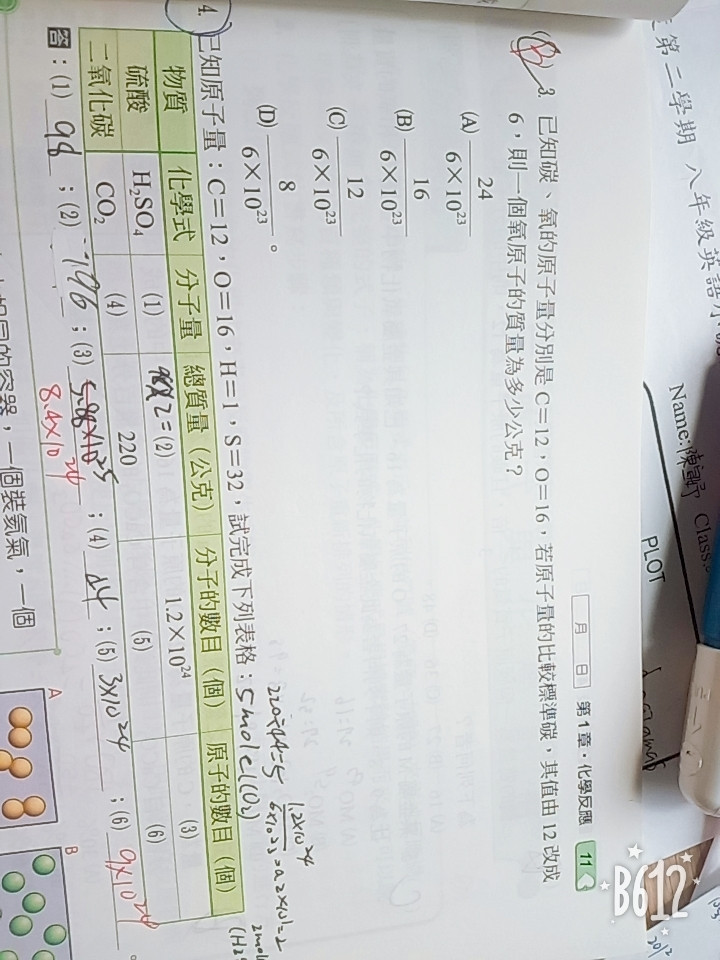 第二學期 八年級英語
Name: Class:
PLOT
月 日 第1章・化學反應 11
(B) 3. 已知碳、氧的原子量分別是 C=12,O=16,若原子量的比較標準碳,其值由 12 改成
6,則一個氧原子的質量為多少公克?
(A) 24/6×10²³
(B) 16/6×10²³
(C) 12/6×10²³
(D) 8/6×10²³ 。
220÷44=5
5mole(CO₂)
1.2×10²⁴/6×10²³=0.2×10¹=2
4. 已知原子量:C=12,O=16,H=1,S=32,試完成下列表格:
物質 化學式 分子量 總質量(公克) 分子的數目(個) 原子的數目(個)
硫酸 H₂SO₄ (1) 98×2=(2) 1.2×10²⁴ (3)
二氧化碳 CO₂ (4) 220 (5) (6)
答:(1) 98 ;(2) 196 ;(3) 5.88×10²⁵ ;(4) 44 ;(5) 3×10²⁴ ;(6) 9×10²⁴ 。
8.4×10²⁴
的容器,一個裝氦氣,一個
A
B
B612